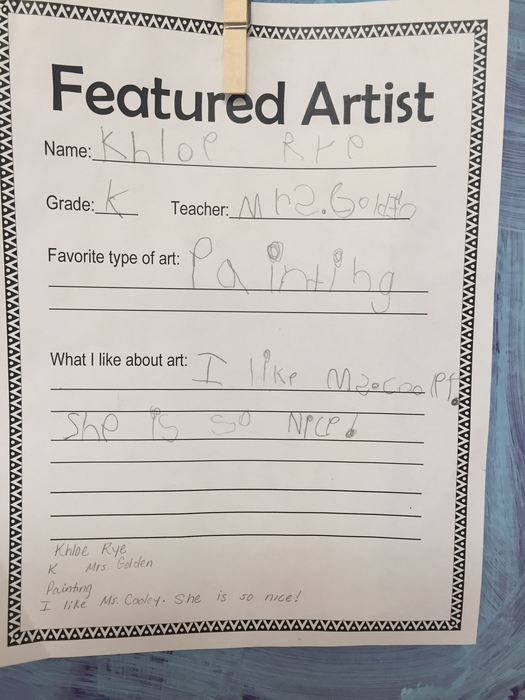 Featured Artist
Name: Khloe Rye
Grade: K Teacher: Mrs. Golden
Favorite type of art: Painting
What I like about art: I like
She is so Nice!
Khloe Rye
K Mrs. Golden
Painting
I like Ms. Cooley. She is so nice!